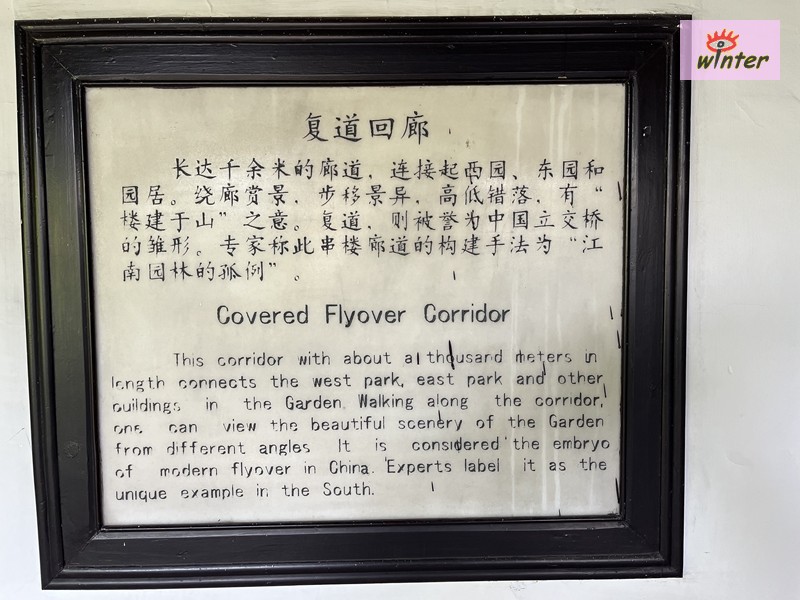 winter
复道回廊
长达千余米的廊道，连接起西园、东园和
园居。绕廊赏景，步移景异，高低错落，有“
楼建于山”之意。复道，则被誉为中国立交桥
的雏形。专家称此串楼廊道的构建手法为“江
南园林的孤例”。
Covered Flyover Corridor
This corridor with about a thousand meters in
length connects the west park, east park and other
buildings in the Garden. Walking along the corridor,
one can view the beautiful scenery of the Garden
from different angles It is considered the embryo
of modern flyover in China. Experts label it as the
unique example in the South.